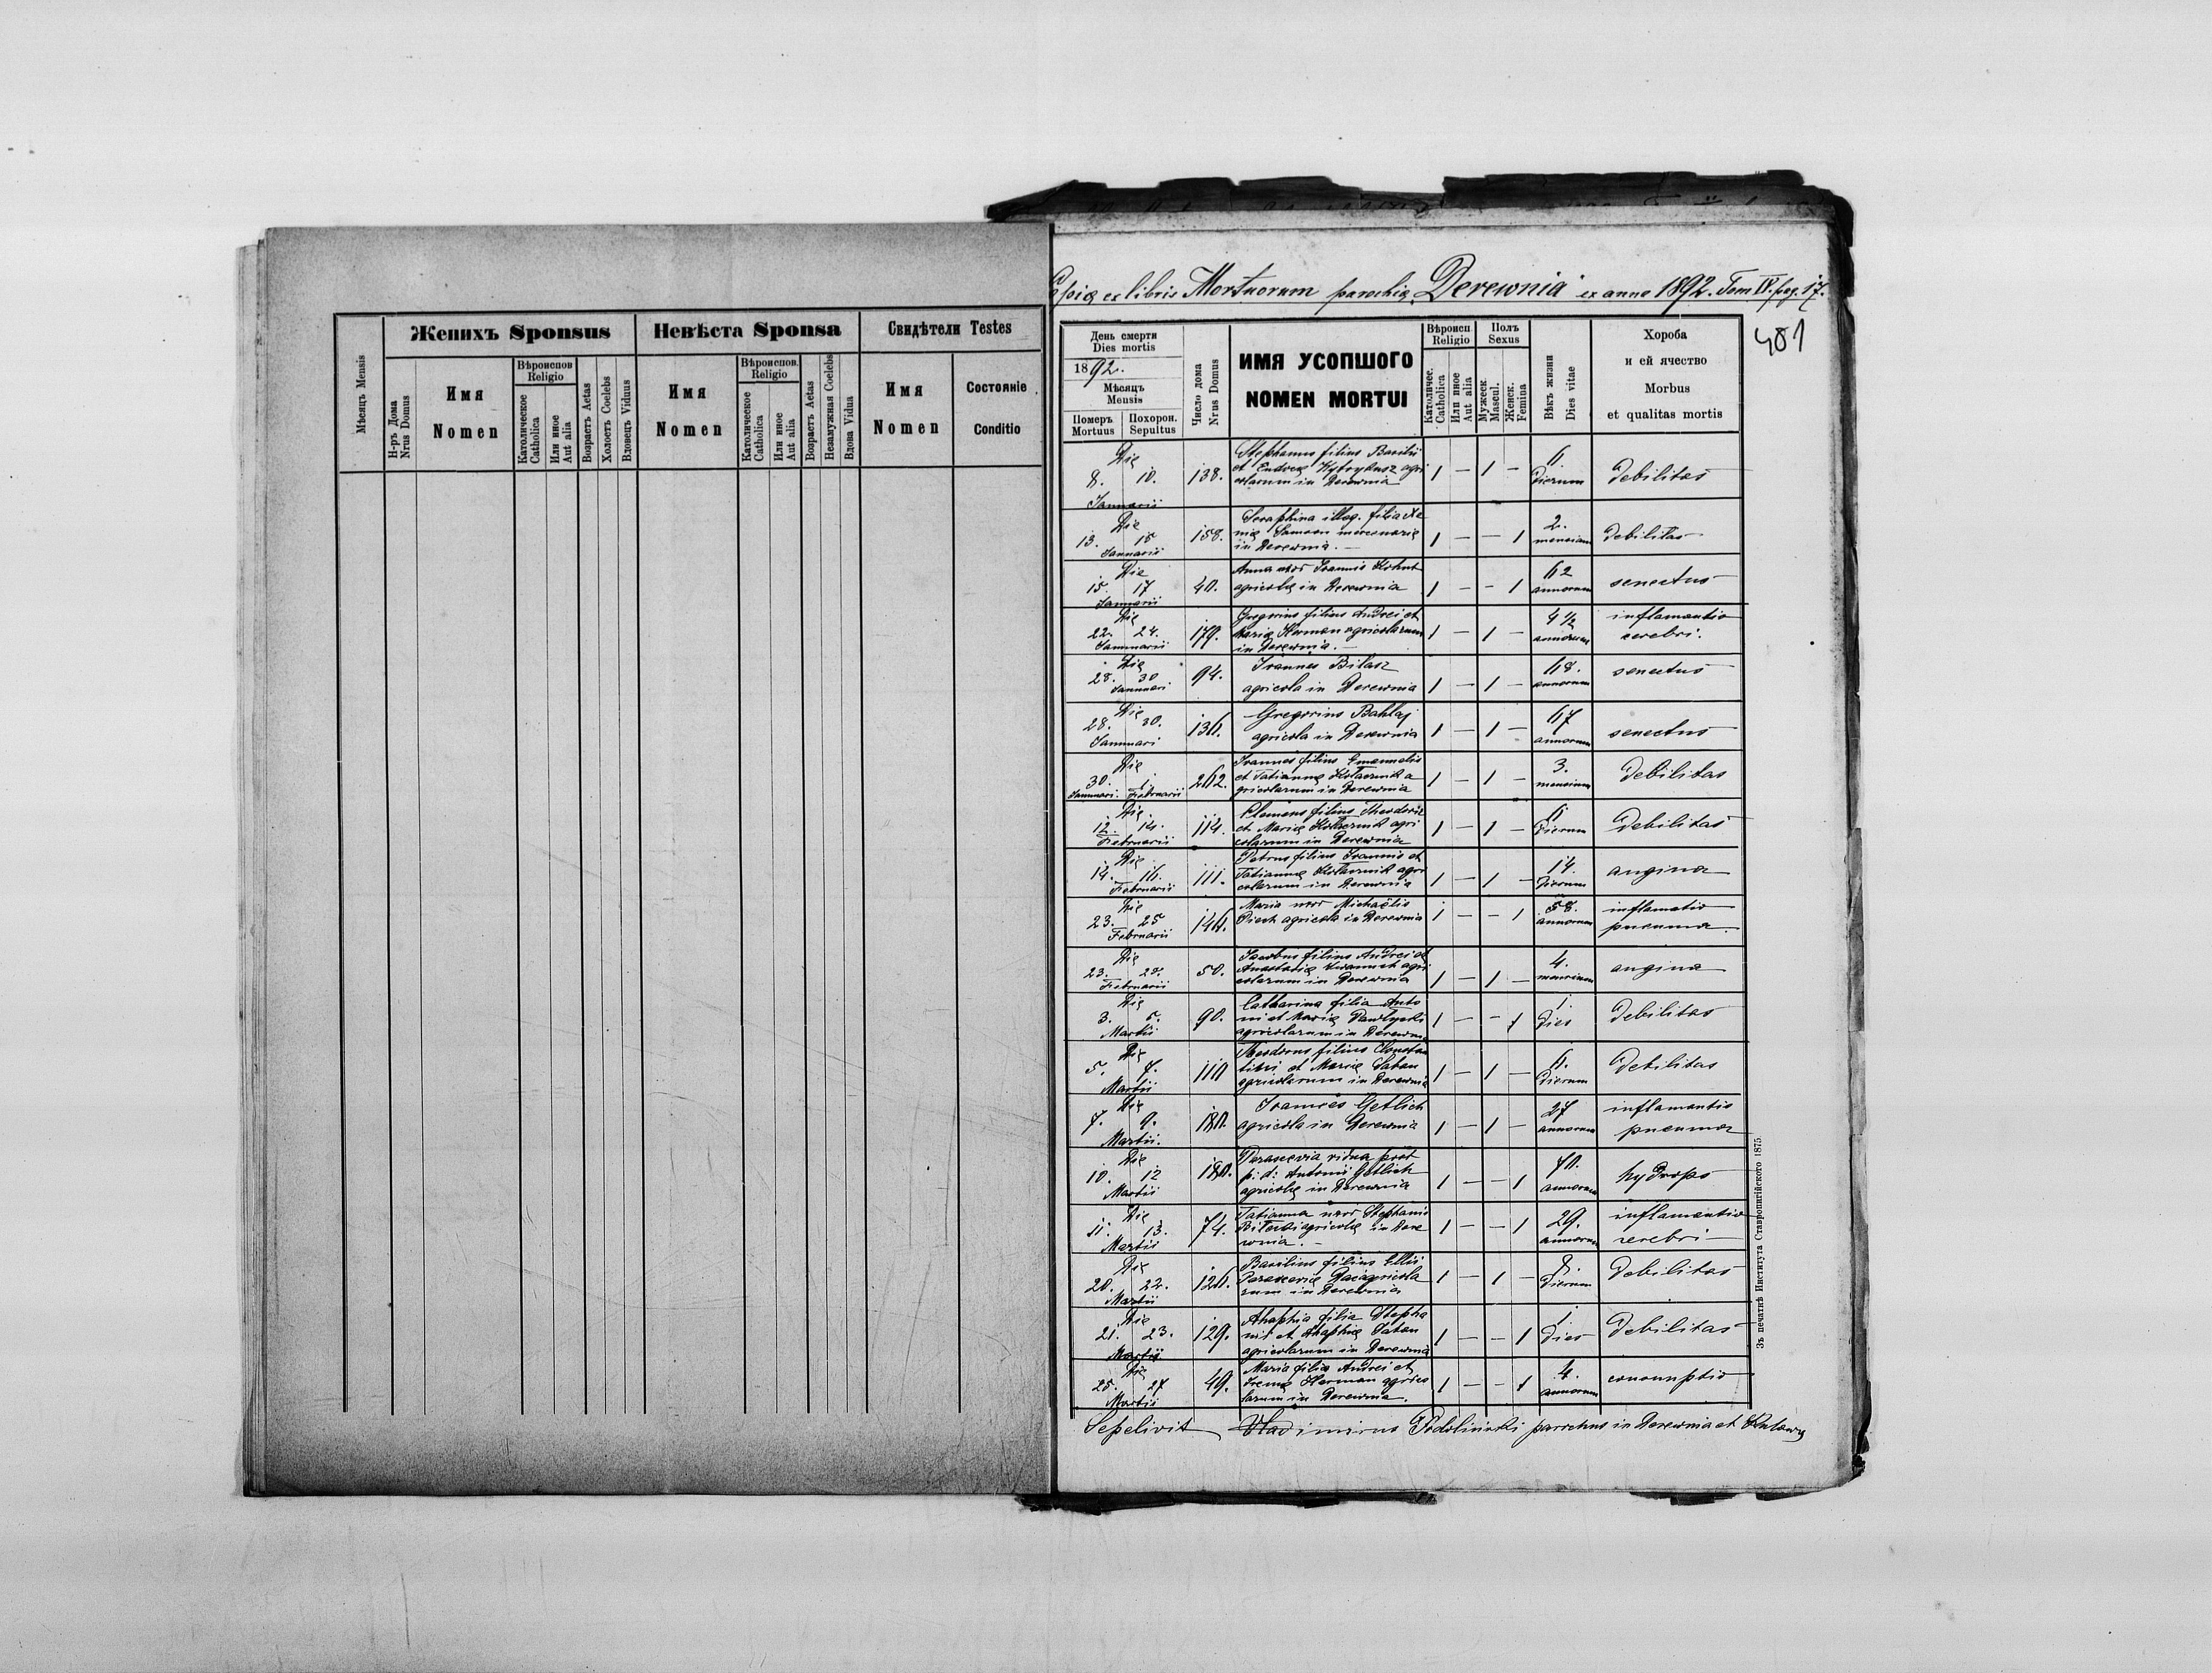 Женихъ Sponsus
Невѣста Sponsa
Свидѣтели Testes
Мѣсяцъ Mensis
Н-ръ Дома
Nrus Domus
Имя
Nomen
Вѣроиспов
Religio
Католическое
Catholica
Или иное
Aut alia
Возрастъ Aetas
Холостъ Coelebs
Вдовецъ Viduus
Имя
Nomen
Вѣроиспов.
Religio
Католическое
Catholica
Или иное
Aut alia
Возрастъ Aetas
Незамужная Coelebs
Вдова Vidua
Имя
Nomen
Состояніе
Conditio
Copia ex libris Mortuorum parochiæ Derewnia ex anno 1892. Tom IV. pag. 17.
481
День смерти
Dies mortis
1892.
Мѣсяцъ
Mensis
Померъ
Mortuus
Похорон.
Sepultus
Число дома
Nrus Domus
ИМЯ УСОПШОГО
NOMEN MORTUI
Вѣроисп
Religio
Католичес.
Catholica
Или иное
Aut alia
Полъ
Sexus
Мужеск.
Mascul.
Женск.
Femina
Вѣкъ жизни
Dies vitae
Хороба
и ей ячество
Morbus
et qualitas mortis
Die
8. 10.
Januarii
138.
Stephanus filius Basilii
et agri
colarum in Derewnia
1 — 1 —
6.
dierum
debilitas
Die
13. 15
Januarii
158.
Seraphina illeg. filia Xe
niæ Samson mercenariæ
in Derewnia. —
1 — — 1
2.
mensium
debilitas
Die
15. 17
Januarii
40.
Anna uxor Joannis Kohut
agricolæ in Derewnia
1 — — 1
62
annorum
senectus
Die
22. 24.
Januarii
179.
Gregorius filius Andrei et
Mariæ Herman agricolarum
in Derewnia. —
1 — 1 —
4 ½
annorum
inflamantio
cerebri.
Die
28. 30
Januari
94.
Joannes Bilasz
agricola in Derewnia
1 — 1 —
68.
annorum
senectus
Die
28. 30.
Januari
136.
Gregorius Bahlaj
agricola in Derewnia
1 — 1 —
67
annorum
senectus
Die
30. 1.
Januari. Februarii
262.
Joannes filius Emanuelis
et Tatiannæ a
gricolarum in Derewnia
1 — 1 —
3.
mensium
debilitas
Die
12. 14.
Februarii
114.
Clemens filius Theodori
et Mariæ agri
colarum in Derewnia
1 — 1 —
6
dierum
debilitas
Die
14. 16.
Februarii
111.
Petrus filius Joannis et
Tatiannæ agri
colarum in Derewnia
1 — 1 —
14.
dierum
angina
Die
23. 25
Februarii
146.
Maria uxor Michaëlis
agricola in Derewnia
1 — — 1
58.
annorum
inflamatio
pneumo.
Die
23. 25.
Februarii
50.
Jacobus filius Andrei et
Anastasiæ agri
colarum in Derewnia
1 — 1 —
4.
mensium
angina
Die
3. 5.
Martii
90.
Catharina filia Anto
nii et Mariæ Pawlycki
agricolarum in Derewnia
1 — — 1
1.
dies
debilitas
Die
5. 7.
Martii
110
Theodorus filius Constan
tini et Mariæ Saban
agricolarum in Derewnia
1 — 1 —
6.
dierum
debilitas
Die
7. 9.
Martii.
180.
Joannes Getlich
agricola in Derewnia
1 — 1 —
27
annorum
inflamantio
pneumo
Die
10. 12
Martii
180.
Parascevia vidua post
p: d: Antonii Getlich
agricolæ in Derewnia
1 — — 1
70.
annorum
hydrops
Die
11. 13.
Martii
74.
Tatianna uxor Stephani
agricolæ in Dere
wnia. —
1 — — 1
29.
annorum
inflamantio
cerebri
Die
20. 22.
Martii
126.
Basilius filius Ellii
Parasceviæ agricola
rum in Derewnia
1 — 1 —
8.
dierum
debilitas
Die
21. 23.
Martii
129.
Ahaphia filia Stepha
ni et Ahaphiæ Saban
agricolarum in Derewnia
1 — — 1
1
dies
debilitas
Die
25. 27
Martii
49.
Maria filia Andrei et
Irenæ Herman agrico
larum in Derewnia.
1 — — 1
4.
annorum
consumptio
Sepelivit Vladimirus Podoliński parochus in Derewnia et
Зъ печатнѣ Института Ставропигійского 1875.